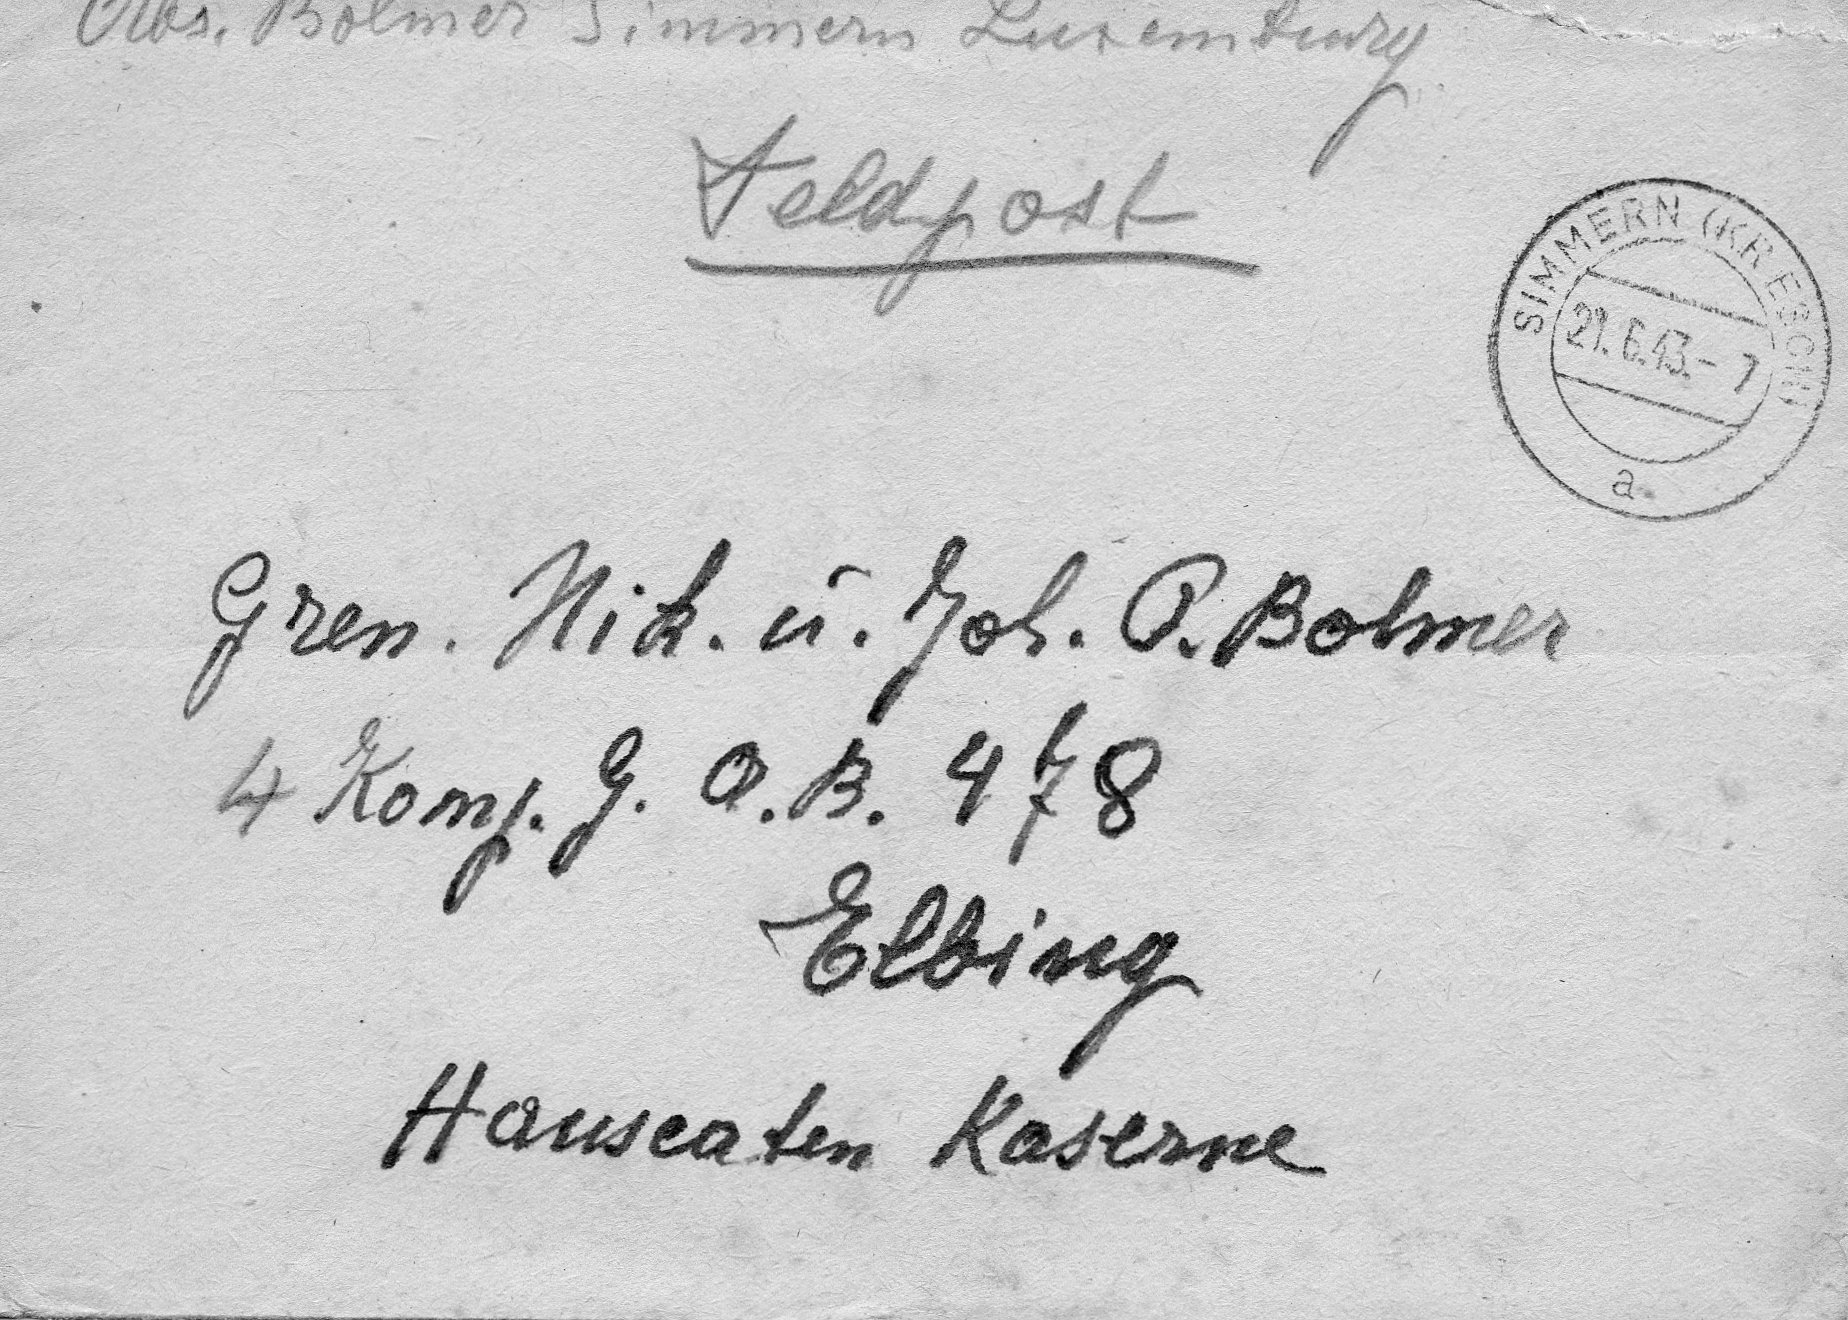 Abs. Bolmer Simmern Luxemburg
Feldpost
SIMMERN (KR ESCH)
21.6.43.-7
a
Gren. Nik. u. Joh. P. Bolmer
4 Komp. G. A.B. 478
Elbing
Hanseaten Kaserne